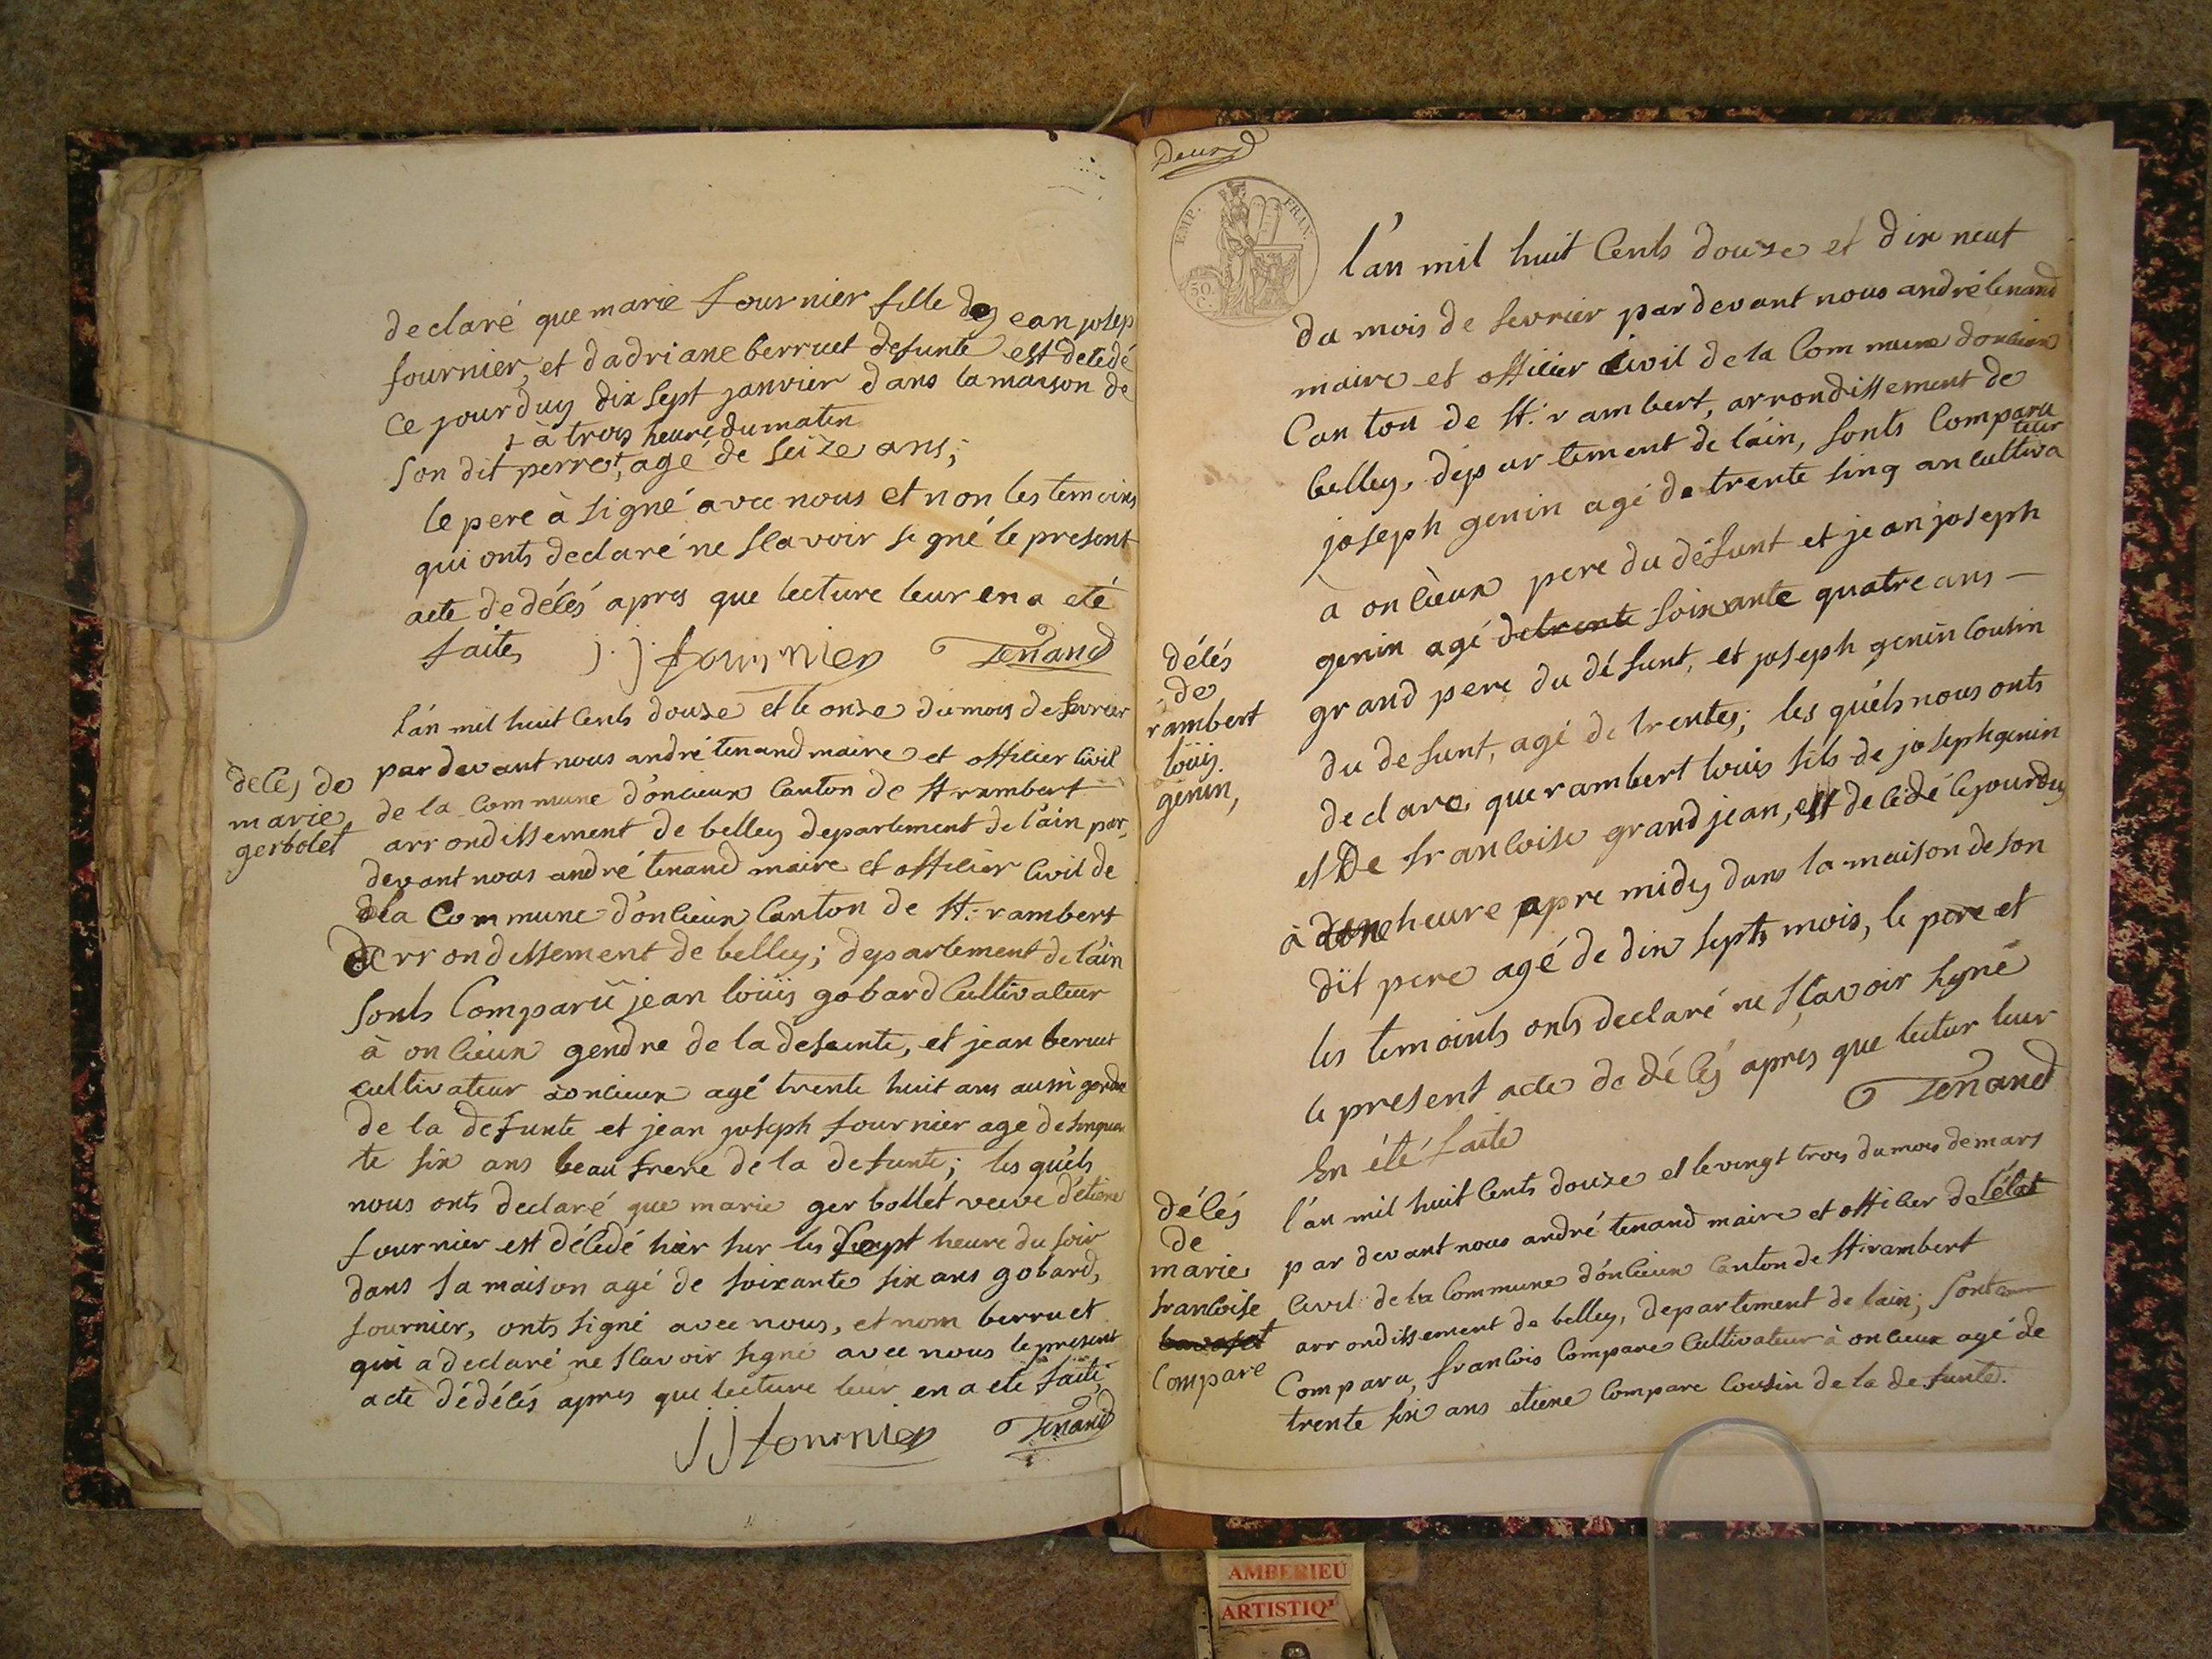 declaré que marie fournier fille de jean josep
fournier, et dadriane berruet defunte est decedé
ce jourduy dix sept janvier dans la maison de
+ à trois heure du matin
son dit perre +, agé de seize ans;
le pere à signé avec nous et non les temoins
qui onts declaré ne scavoir signé le present
acte de décés apres que lecture leur en a eté
faites j.j. fournier Tenand
l'an mil huit cents douze et le onze du mois de fevrier
deces de
marie
gerbolet
par devant nous andré tenand maire et officier civil
de la commune d'oncieux canton de st rambert
arrondissement de belley departement de l'ain par
devant nous andré tenand maire et officier civil de
la commune d'oncieux canton de st. rambert
arrondissement de belley; departement de l'ain
sonts comparü jean loüis gobard cultivateur
à oncieux gendre de la defunte, et jean berruet
cultivateur à oncieux agé trente huit ans aussi gendre
de la defunte et jean joseph fournier age de sinquan
te six ans beau frere de la defunte; les quels
nous onts declaré que marie gerbollet veuve d'etiene
fournier est décedé hier sur les sept heure du soir
dans sa maison agé de soixante six ans gobard,
fournier, onts signé avec nous, et nom berruet
qui a declaré ne scavoir signé avec nous le present
acte dédécés apres que lecture leur en a eté faite
jj fournier Tenand
Deux
EMP. FRAN.
50 C.
l'an mil huit cents douze et dix neuf
du mois de fevrier par devant nous andré tenand
maire et officier civil de la commune doncieux
canton de st. rambert, arrondissement de
belley, departement de l'ain, sonts comparu
joseph genin agé de trente sinq an cultiva
teur
à oncieux pere du défunt et jean joseph
genin agé de trente soixante quatre ans —
grand pere du défunt, et joseph genin cousin
du defunt, agé de trentes; les quéls nous onts
declaré que rambert louis fils de joseph genin
et De francoise grand jean, est decédé ce jourduy
à heure apre midy dans la maison de son
dït pere agé de dix septs mois, le pere et
les temoints onts declaré ne sçavoir signé
le present acte de décés apres que lectur leur
en été faite Tenand
décés
de
rambert
loüis
genin,
l'an mil huit cents douze et le vingt trois du mois de mars
par devant nous andré tenand maire et officier de l'état
civil de la commune d'oncieux canton de st. rambert
arrondissement de belley, departement de l'ain; sont
comparu, francois compare cultivateur à oncieux agé de
trente six ans etiene compare cousin de la defunte.
décés
de
marie
francoise
compare
AMBERIEU
ARTISTIQ